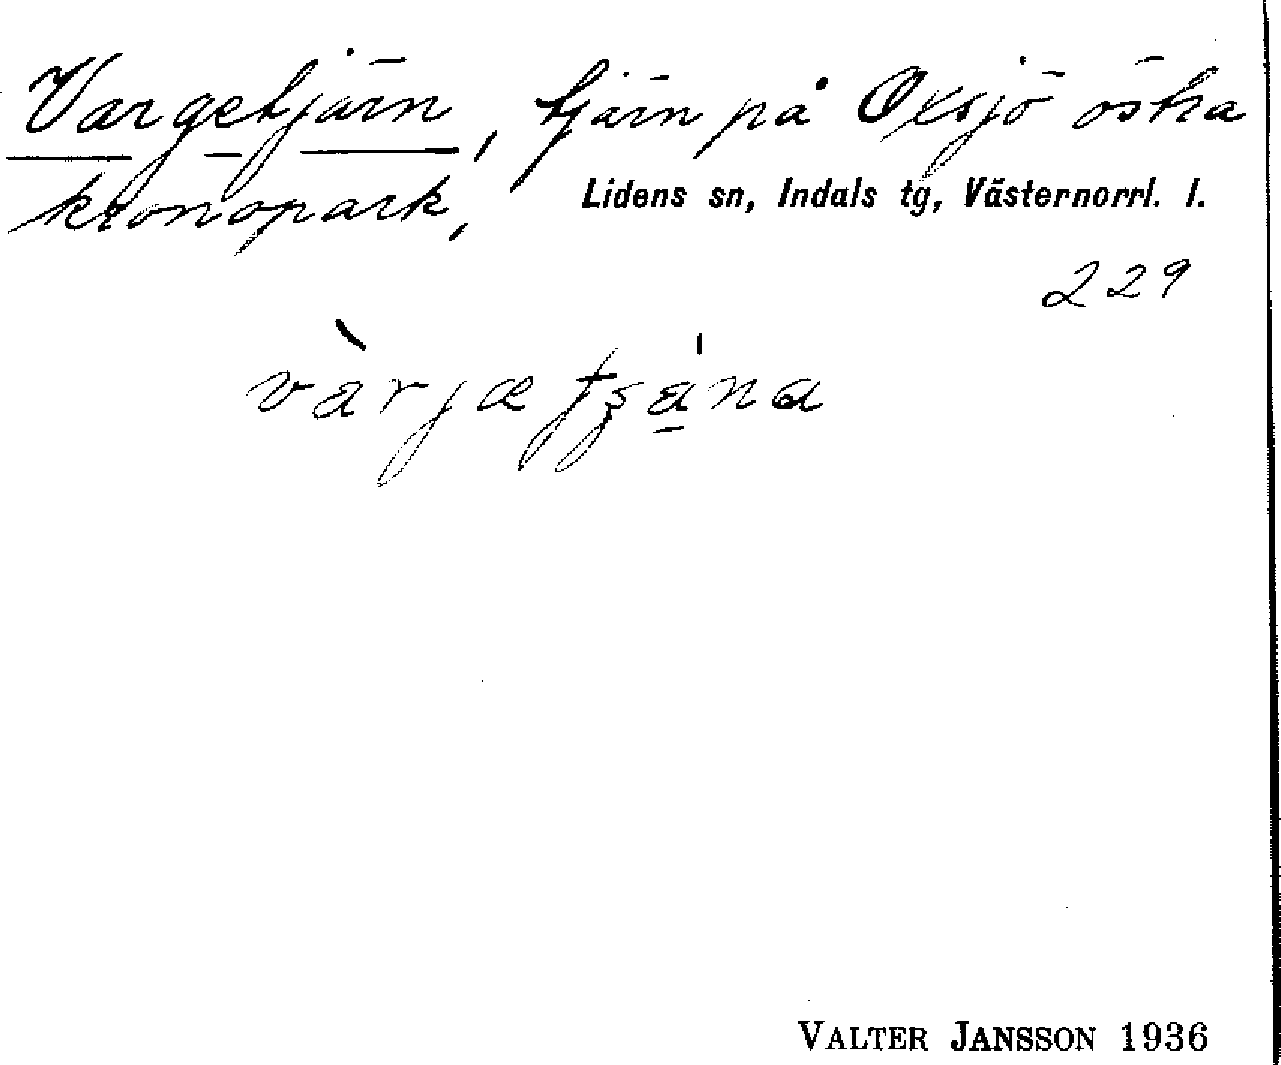 Vargetjärn, tjärn på Oxsjö östra
kronopark,
Lidens sn, Indals tg, Västernorrl. l.
229
VALTER JANSSON 1936